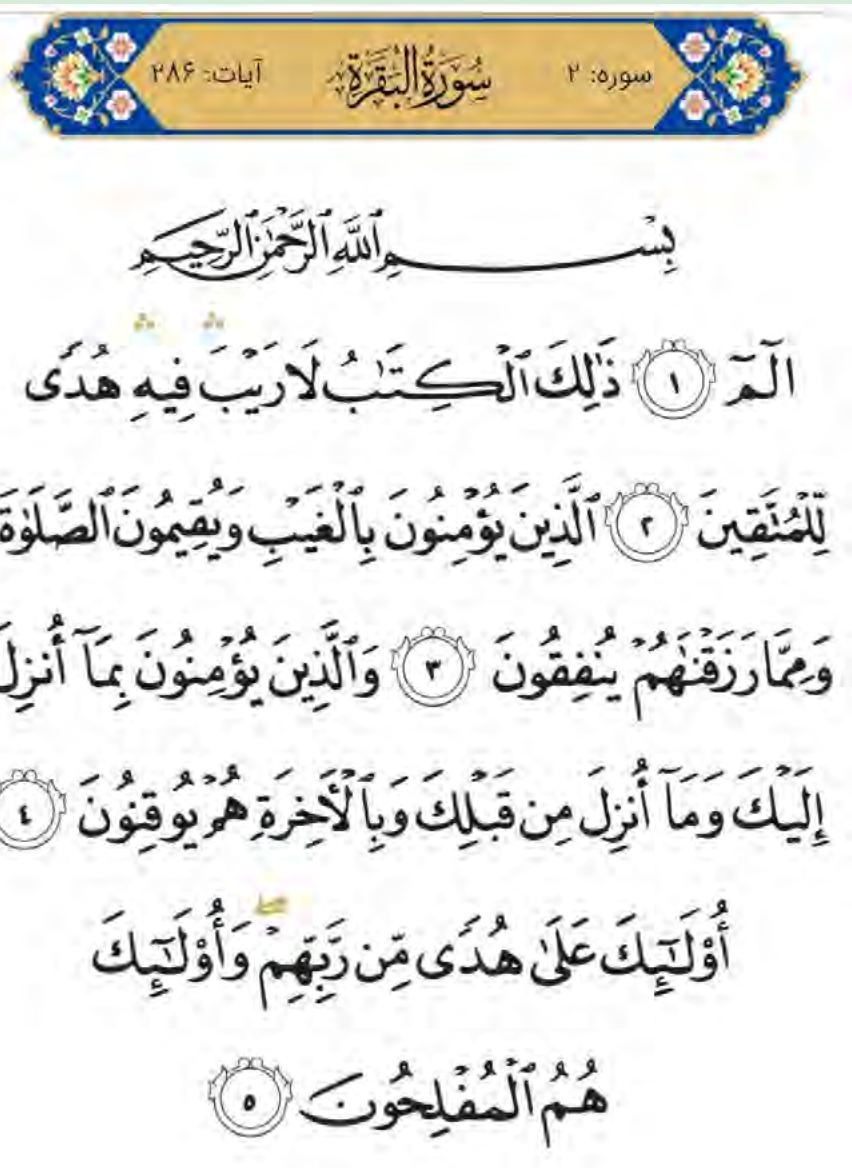 سوره: ۲ سُورَةُ الْبَقَرَةِ آیات: ۲۸۶
بِسْمِ ٱللَّهِ ٱلرَّحْمَٰنِ ٱلرَّحِيمِ
الٓمٓ ١ ذَٰلِكَ ٱلْكِتَٰبُ لَا رَيْبَ ۛ فِيهِ ۛ هُدًى
لِّلْمُتَّقِينَ ٢ ٱلَّذِينَ يُؤْمِنُونَ بِٱلْغَيْبِ وَيُقِيمُونَ ٱلصَّلَوٰةَ
وَمِمَّا رَزَقْنَٰهُمْ يُنفِقُونَ ٣ وَٱلَّذِينَ يُؤْمِنُونَ بِمَآ أُنزِلَ
إِلَيْكَ وَمَآ أُنزِلَ مِن قَبْلِكَ وَبِٱلْأَخِرَةِ هُمْ يُوقِنُونَ ٤
أُو۟لَٰٓئِكَ عَلَىٰ هُدًى مِّن رَّبِّهِمْ ۖ وَأُو۟لَٰٓئِكَ
هُمُ ٱلْمُفْلِحُونَ ٥